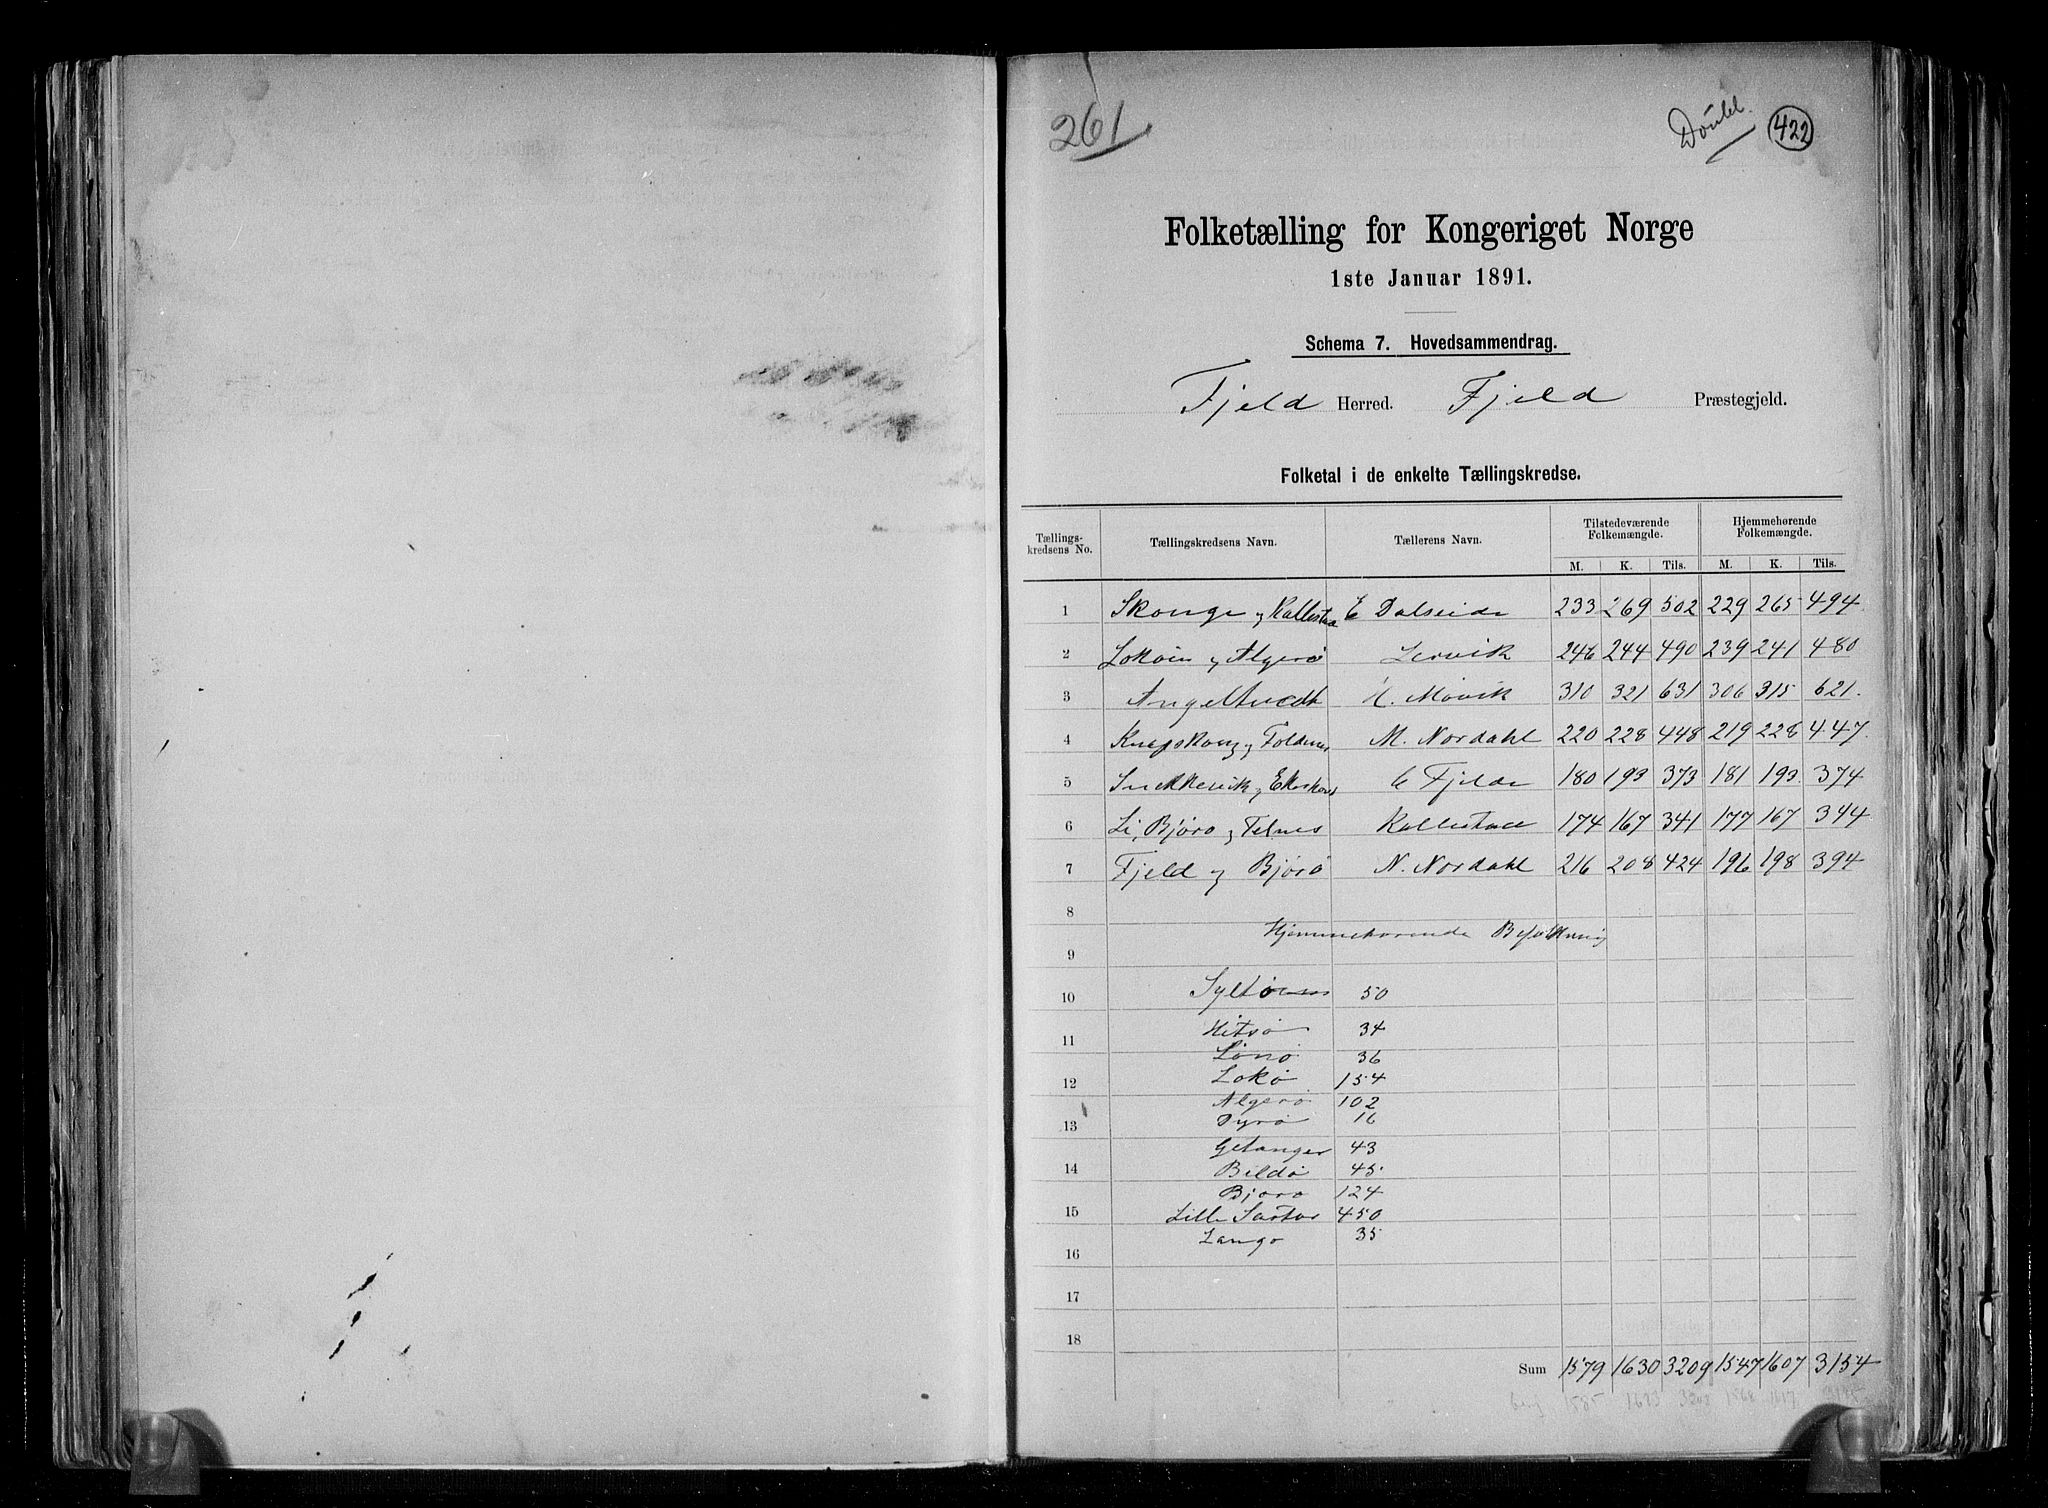 261
Doubl. 422
Folketælling for Kongeriget Norge
1ste Januar 1891.
Schema 7. Hovedsammendrag.
Fjeld Herred. Fjeld Præstegjeld.
Folketal i de enkelte Tællingskredse.
Tællings-kredsens No. Tællingskredsens Navn. Tællerens Navn. Tilstedeværende Folkemængde. Hjemmehørende Folkemængde.
M. K. Tils. M. K. Tils.
1 Skouge og Kallestad E Dalseide 233 269 502 229 265 494
2 Lokøen og Algerø Lervik 246 244 490 239 241 480
3 Angeltvedt H. Møvik 310 321 631 306 315 621.
4 Knapskoug og Foldnes M. Nordahl 220 228 448 219 228 447.
5 Snekkevik og Ekerhovd C Fjelde 180 193 373 181 193 374
6 Li, Bjørø og Telnes Kallestad 174 167 341 177 167 344
7 Fjeld og Bjørø N. Nordahl 216 208 424 196 198 394
8
Hjemmehørende Befolkning
9
10 Syltøen 50
11 Hitsø 34
Lønø 36
12 Lokø 154
Algerø 102
13 Dyrø 16
Getanger 43
14 Bildø 45
Bjorø 124
15 Lille Sartor 450
Langø 35
16
17
18
Sum 1579 1630 3209 1547 1607 3154